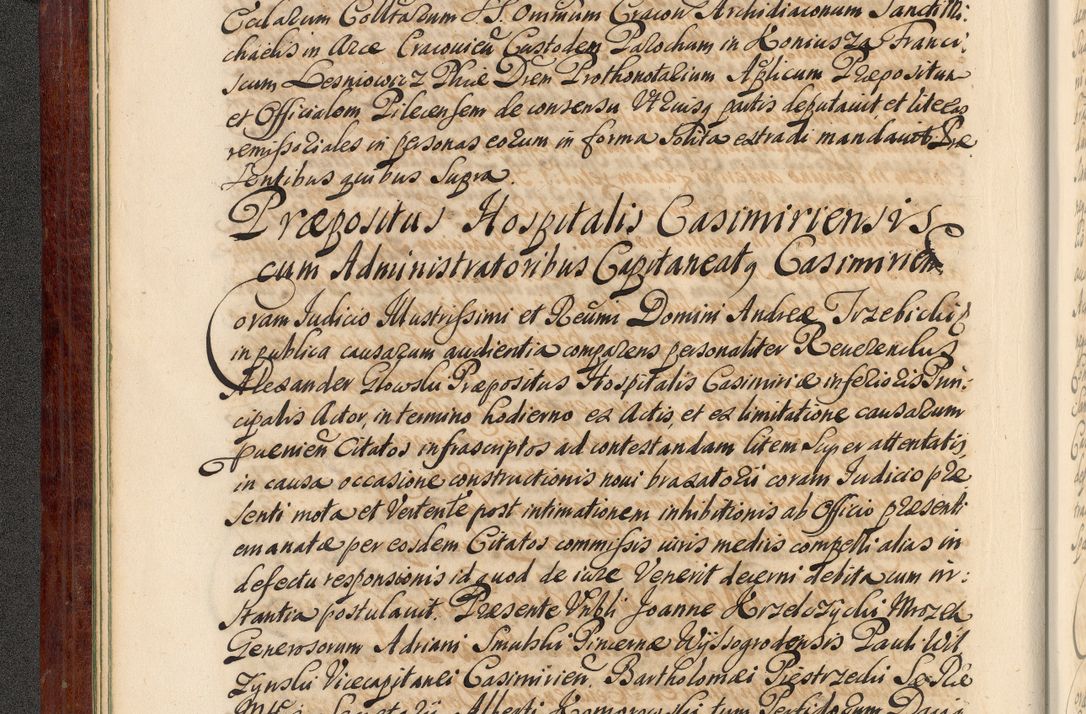 Ecclarum Colltarum SS. Omnium Cracou Archidiaconum Sancti Mi:
chaelis in Arce Cracouien̄ Custodem Parochum in Koniusza Franci:
scum Lesniowicz Phiæ Drem Prothonotarium Aplicum Præpositum
et Officialem Pilecensem de consensu Utriusq partis deputauit, et literas
remissoriales in personas eorum in forma solita extradi mandauit Præ
sentibus quibus supra.
Præpositus Hospitalis Casimiriensis
cum Administratoribus Capitaneatq Casimirien
Coram Judicio Illustrissimi et Reūmi Domini Andreæ Trzebicki
in publica causarum audientia comparens personaliter Reuerendus
Alexander Glowski Præpositus Hospitalis Casimiriæ inferioris Prin:
cipalis Actor, in termino hodierno ex Actis, et ex limitatione causarum
pueniēn Citatos infrascriptos ad contestandam litem super attentatis
in causa occasione constructionis noui braxatorii coram Judicio præ
senti mota et Vertente post intimationem inhibitionis ab Officio præsenti
emanatæ per eosdem Citatos commissis iuris mediis compelli alias in
defectu responsionis id quod de iure Venerit decerni debita cum in:
stantia postulauit. Præsente Nobli Joanne Krzelczycki Mrozek
Generosorum Adriani Smulski Pincernæ Wyssogrodensis Pauli Wil
zynski Vicecapitanei Casimirien̄. Bartholomæi Piestrzecki Sæ Ræ
Mtis Secretarii Alberti Komorowski tum Perfidorum